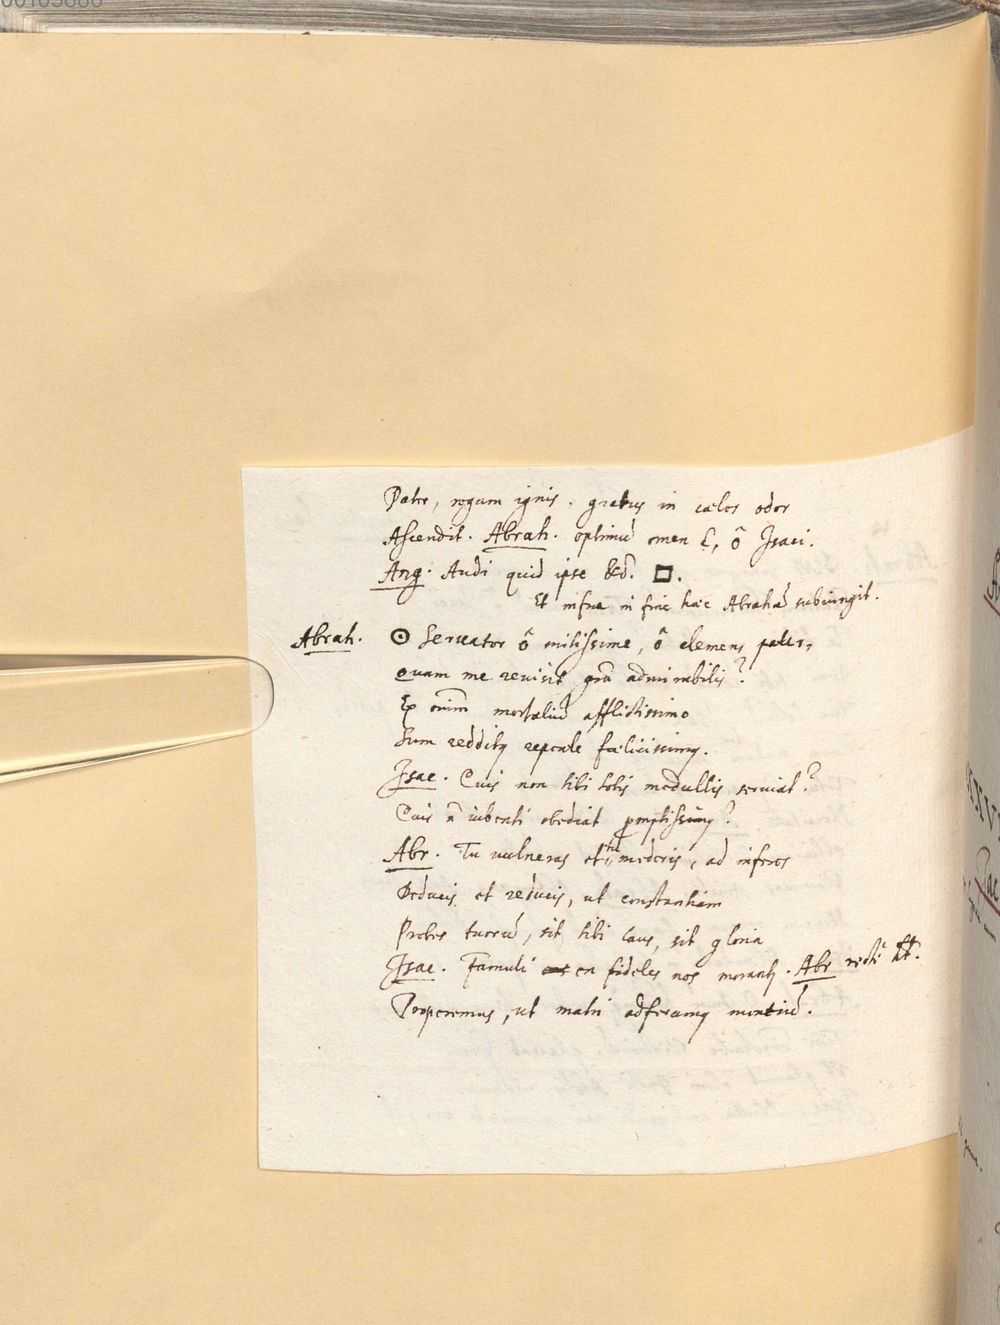 Pater, rogum ignis. gratus in cælos odor
Ascendit. Abrah. optimũ omen ẽ, ô Isaci.
Ang. Audi quid ipse &c. □.
Et infra in fine hæc Abrahã subiungit.
Abrah. ⊙ Seruator ô mitissime, ô clemens pater,
Quam me reuisit grã admirabilis?
Ex om̃i mortaliũ afflictissimo
Sum redditꝰ repente fœlicissimꝰ.
Isac. Cuis non tibi totis medullis seruiat?
Cuis ñ iubenti obediat ꝓmptissimꝰ?
Abr. Tu vulneras et tu mederis, ad inferos
Deducis et reducis, ut constantiam
Probes tuorũ, sit tibi laus, sit gloria
Isac. Famuli en fideles nos morant. Abr rectè
Properemus, ut matri adferamꝰ nuntiũ.